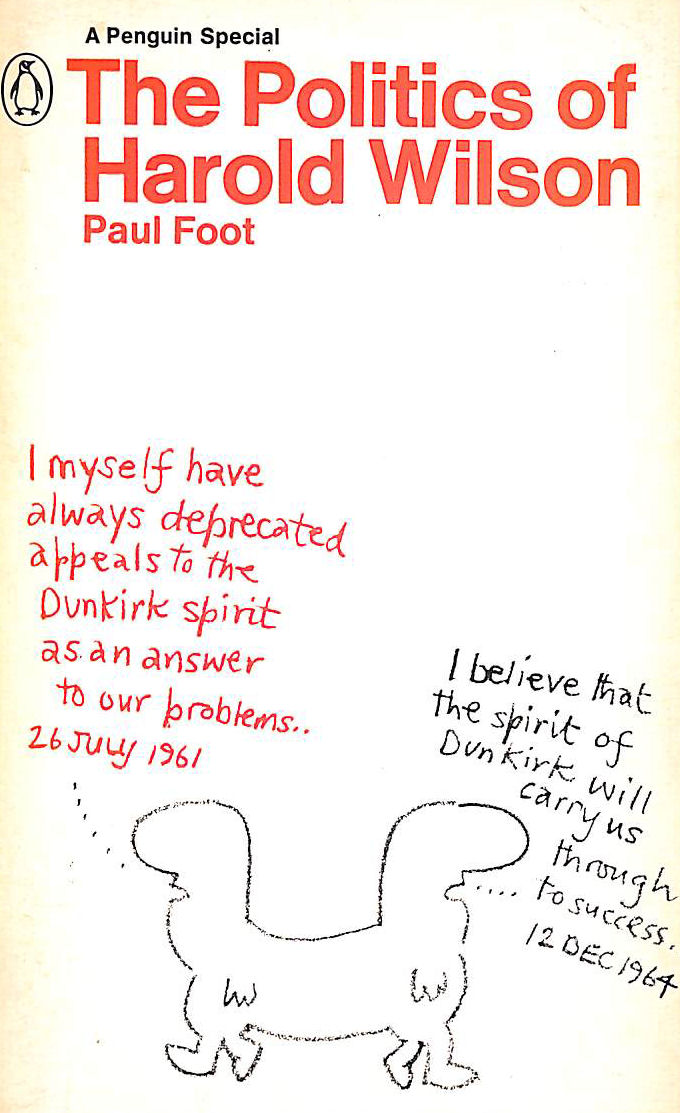 A Penguin Special
The Politics of
Harold Wilson
Paul Foot
I myself have
always deprecated
appeals to the
Dunkirk spirit
as an answer
to our problems..
26 JULY 1961
I believe that
the spirit of
Dunkirk will
carry us
through
to success.
12 DEC 1964